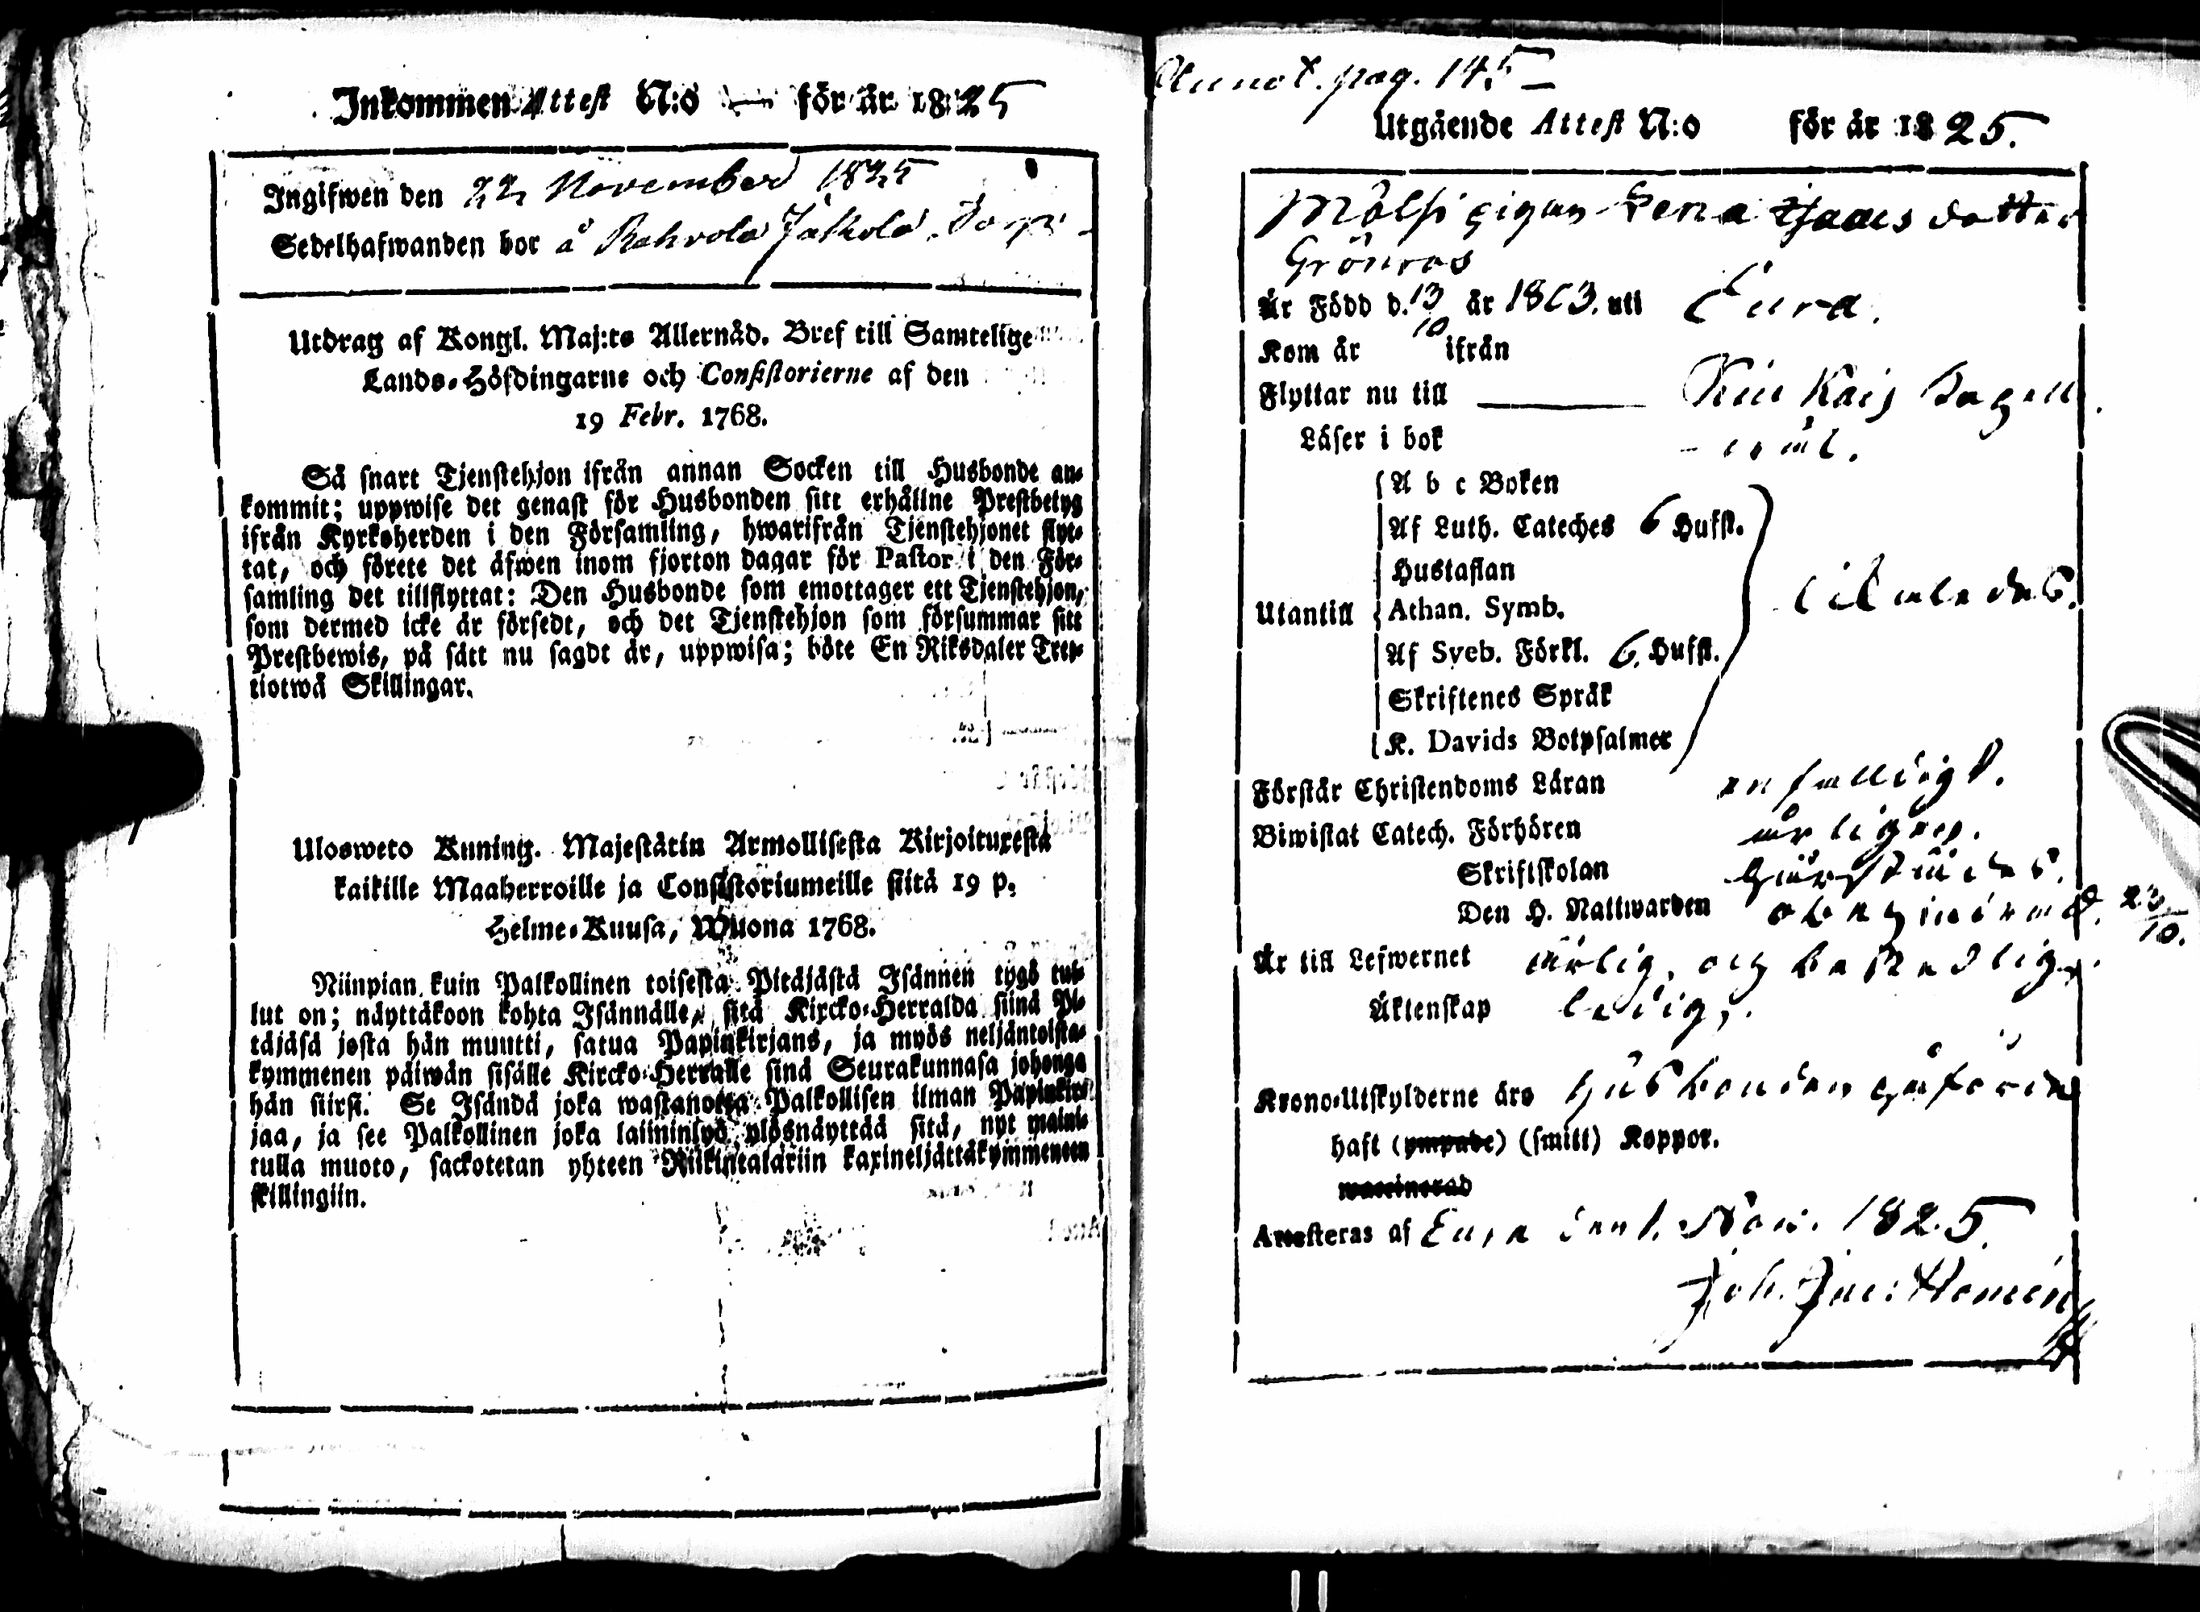 Inkommen Attest N:o — för år 1825
Ingifwen den 22 November 1825
Sedelhafwanden bor å Rahvola Jakola
Utdrag af Kongl. Maj:ts Allernåd. Bref till Samtelige
Lands-Höfdingarne och Consistorierne af den
19 Febr. 1768.
Så snart Tjenstehjon ifrån annan Socken till Husbonde an-
kommit; uppwise det genast för Husbonden sitt erhållne Prestbetyg
ifrån Kyrkoherden i den Församling, hwarifrån Tjenstehjonet flyt-
tat, och förete det äfwen inom fjorton dagar för Pastor i den För-
samling det tillflyttat: Den Husbonde som emottager ett Tjenstehjon,
som dermed icke är försedt, och det Tjenstehjon som försummar sitt
Prestbewis, på sätt nu sagdt är, uppwisa; böte En Riksdaler Tret-
tiotwå Skillingar.
Ulosweto Kuning. Majestätin Armollisesta Kirjoituxesta
kaikille Maaherroille ja Consistoriumeille siitä 19 p.
Helme-Kuusa, Wuona 1768.
Niinpian kuin Palkollinen toisesta Pitäjästä Isännen tygö tul-
lut on; näyttäkoon kohta Isännälle, sitä Kircko-Herralda siinä Pi-
täjäsä josta hän muutti, satua Papinkirjans, ja myös neljäntoista-
kymmenen päiwän sisälle Kircko-Herralle sinä Seurakunnasa johonga
hän siirsi. Se Isändä joka wastanotta Palkollisen ilman Papinkir-
jaa, ja see Palkollinen joka laiminlyö ylösnäyttää sitä, nyt maini-
tulla muoto, sackotetan yhteen Riikintalariin kaxineljättäkymmeneen
skillingiin.
Annot. pag. 145
Utgående Attest N:o för år 1825.
Mölsi pigan Lena Isaacs dotter
Grönros
Är Född d. 13/10 år 1803. uti Eura.
Kom år ifrån
Flyttar nu till Kiukais Kapell.
Läser i bok
A b c Boken
Af Luth. Cateches 6 Hufst.
Hustaflan
Utantill Athan. Symb. likaledes.
Af Sveb. Förkl. 6. Hufst.
Skriftenes Språk
K. Davids Botpsalmer
Förstår Christendoms Läran enfalldigt.
Biwistat Catech. Förhören årligen.
Skriftskolan
Den H. Nattwarden 23/10.
Är till Lefwernet ärlig, och beskedlig.
Äktenskap ledig.
Krono-Utskylderne äro Husbonden påförde
haft (ympade) (smitt) Koppor.
waccinerad
Attesteras af Eura den 1. Nov. 1825.
Joh. Jac: Homén